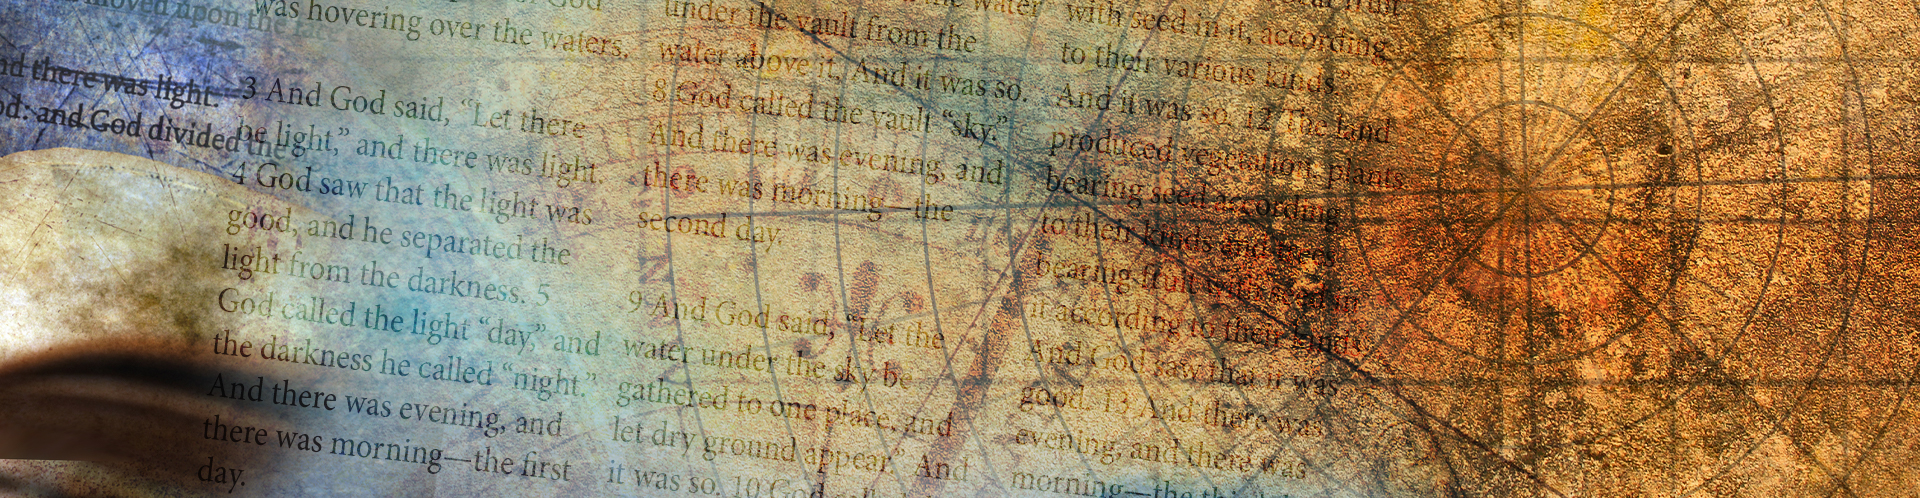 moved upon the face
nd there was light.
od: and God divided the
was hovering over the waters.
3 And God said, “Let there
be light,” and there was light.
4 God saw that the light was
good, and he separated the
light from the darkness. 5
God called the light “day,” and
the darkness he called “night.”
And there was evening, and
there was morning—the first
day.
under the vault from the
water above it. And it was so.
8 God called the vault “sky.”
And there was evening, and
there was morning—the
second day.
9 And God said, “Let the
water under the sky be
gathered to one place, and
let dry ground appear.” And
it was so. 10 God
with seed in it, according
to their various kinds.”
And it was so. 12 The land
produced vegetation: plants
bearing seed according
to their kinds and trees
bearing fruit with seed in
it according to their kinds.
And God saw that it was
good. 13 And there was
evening, and there was
morning—the